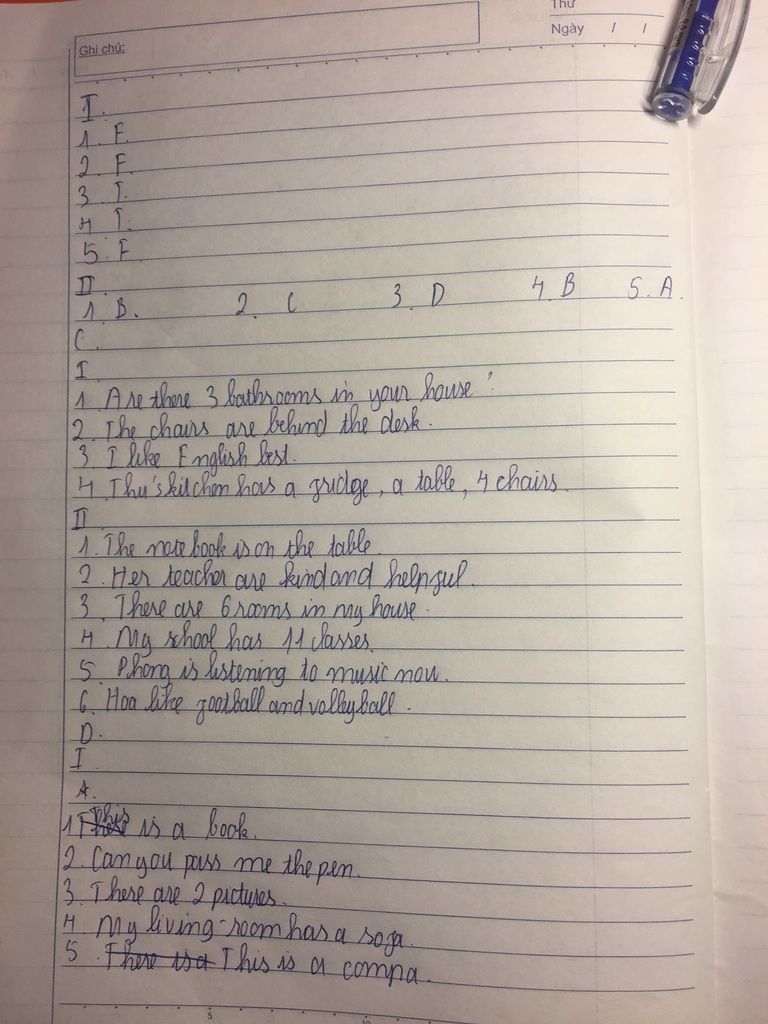 Thứ
Ghi chú:
Ngày / /
I.
1. F.
2. F.
3. T.
4 T.
5. F
II
1 B. 2. C 3. D 4. B 5. A.
C.
I.
1. Are there 3 bathrooms in your house?
2. The chairs are behind the desk.
3 I like English best.
4. Thu's kitchen has a fridge, a table, 4 chairs.
II
1. The notebook is on the table.
2. Her teacher are kind and helpful.
3. There are 6 rooms in my house.
4. My school has 11 classes.
5. Phong is listening to music now.
6. Hoa like football and volleyball.
D.
I
A.
1 This is a book.
2. Can you pass me the pen.
3. There are 2 pictures.
4. My living-room has a sofa.
5. There is a This is a compa.
5 10